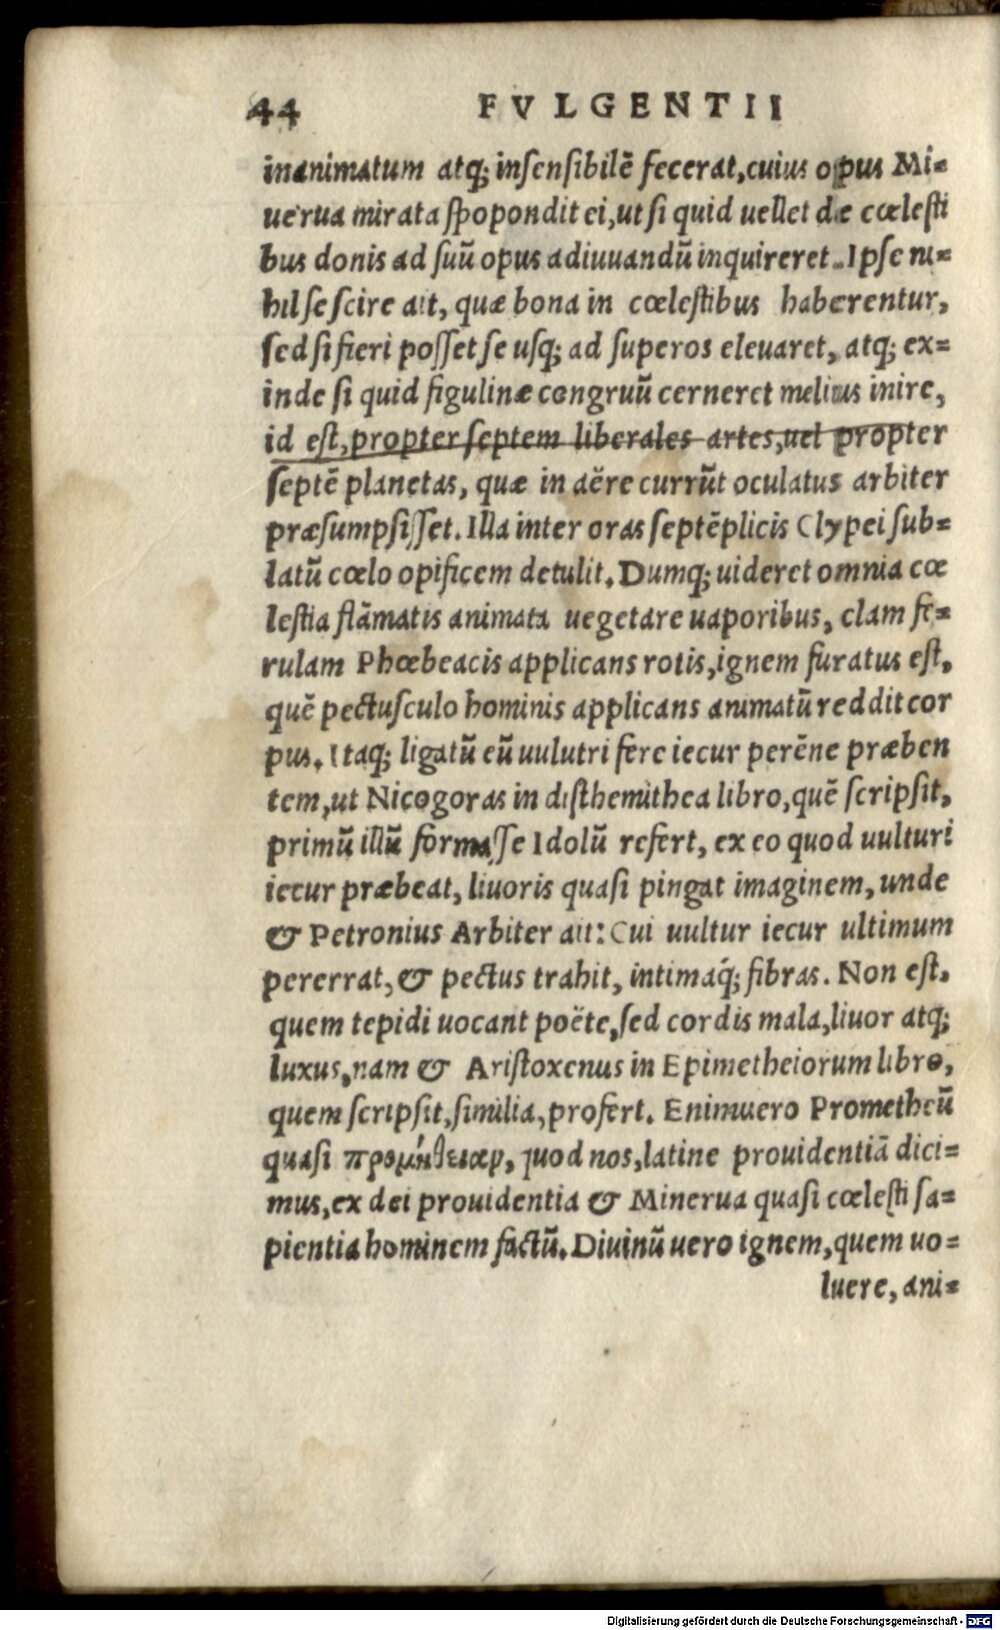 44 FVLGENTII
inanimatum atq; insensibilē fecerat, cuius opus Mi-
uerua mirata spopondit ei, ut si quid uellet de cœlesti
bus donis ad suū opus adiuuandū inquireret. Ipse ni-
hil se scire ait, quæ bona in cœlestibus haberentur,
sed si fieri posset se usq; ad superos eleuaret, atq; ex-
inde si quid figulinæ congruū cerneret melius inire,
id est, propter septem liberales artes, uel propter
septē planetas, quæ in aëre currūt oculatus arbiter
præsumpsisset. Illa inter oras septēplicis Clypei sub-
latū cœlo opificem detulit. Dumq; uideret omnia cœ
lestia flāmatis animata uegetare uaporibus, clam fe-
rulam Phœbeacis applicans rotis, ignem furatus est,
quē pectusculo hominis applicans animatū reddit cor
pus. Itaq; ligatū eū uulutri fere iecur perēne præben
tem, ut Nicogoras in disthemithea libro, quē scripsit,
primū illū formasse Idolū refert, ex eo quod uulturi
iecur præbeat, liuoris quasi pingat imaginem, unde
& Petronius Arbiter ait: Cui uultur iecur ultimum
pererrat, & pectus trahit, intimaq́; fibras. Non est,
quem tepidi uocant poëte, sed cordis mala, liuor atq;
luxus, nam & Aristoxenus in Epimetheiorum libro,
quem scripsit, similia, profert. Enimuero Prometheū
quasi προμήθειαν, quod nos, latine prouidentiā dici-
mus, ex dei prouidentia & Minerua quasi cœlesti sa-
pientia hominem factū. Diuinū uero ignem, quem uo-
luere, ani-
Digitalisierung gefördert durch die Deutsche Forschungsgemeinschaft - DFG